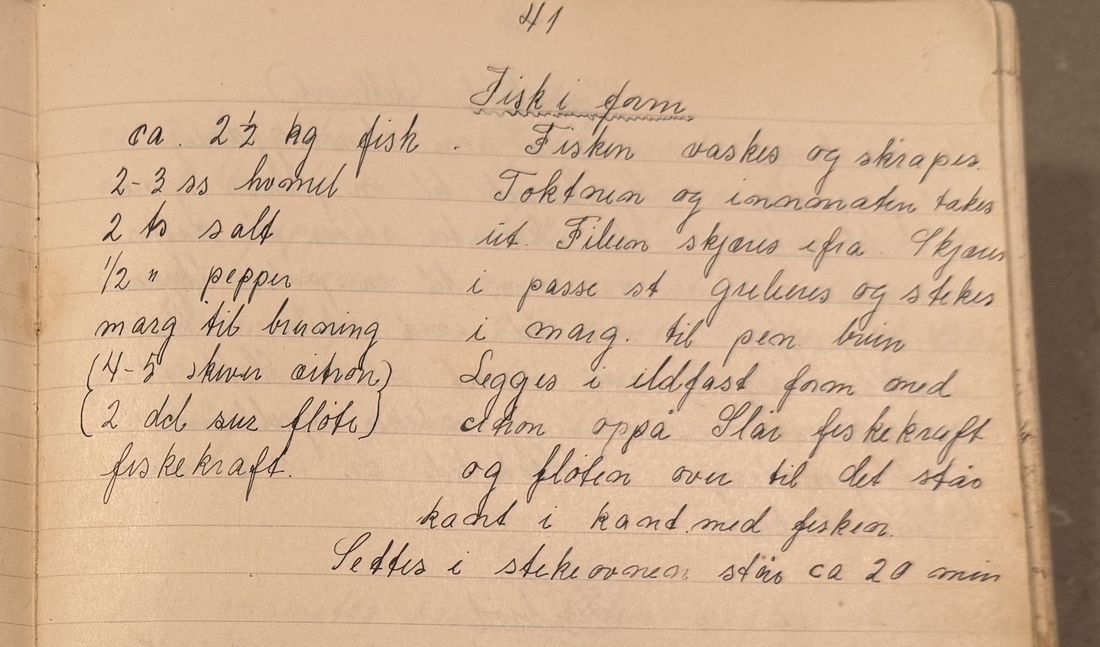 41
Fisk i form
ca. 2 ½ kg fisk.
2-3 ss hvmel
2 ts salt
1/2 " pepper
marg til bruning
(4-5 skiver citron)
(2 dcl sur fløte)
fiskekraft.
Fisken vaskes og skrapes.
og innmaten takes
ut. Fileen skjæres ifra. Skjæres
i passe st grileres og stekes
i marg. til pen brun
Legges i ildfast form med
citron oppå Slår fiskekraft
og fløten over til det står
kant i kant med fisken.
Settes i stekeovnen står ca 20 min